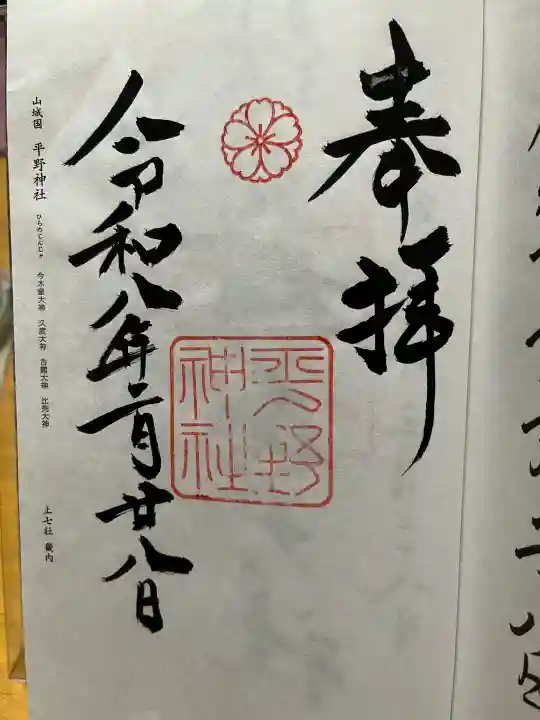 奉拝
平野
神社
令和八年二月廿八日
山城国 平野神社 ひらのじんじゃ 今木皇大神 久度大神 古開大神 比売大神 上七社 畿内